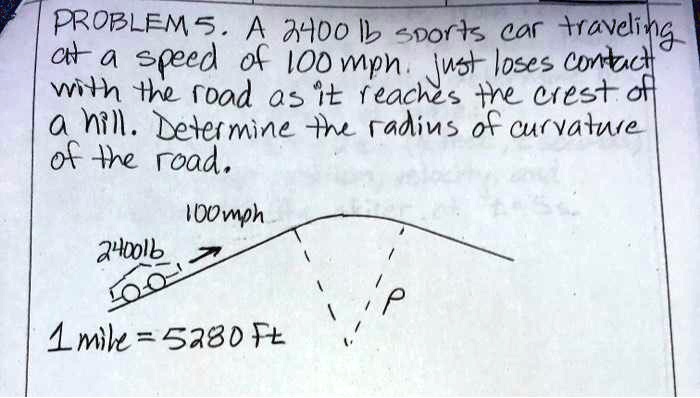 PROBLEM 5. A 2400 lb sports car traveling
at a speed of 100 mph. just loses contact
with the road as it reaches the crest of
a hill. Determine the radius of curvature
of the road.
100mph
2400lb
ρ
1 mile = 5280 Ft